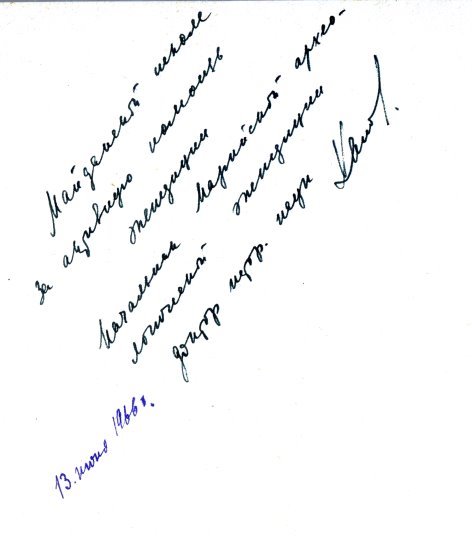 Майданской школе
за активную помощь
экспедиции
Начальник Марийской архео-
логической экспедиции
доктор истор. наук
13. июня 1966 г.